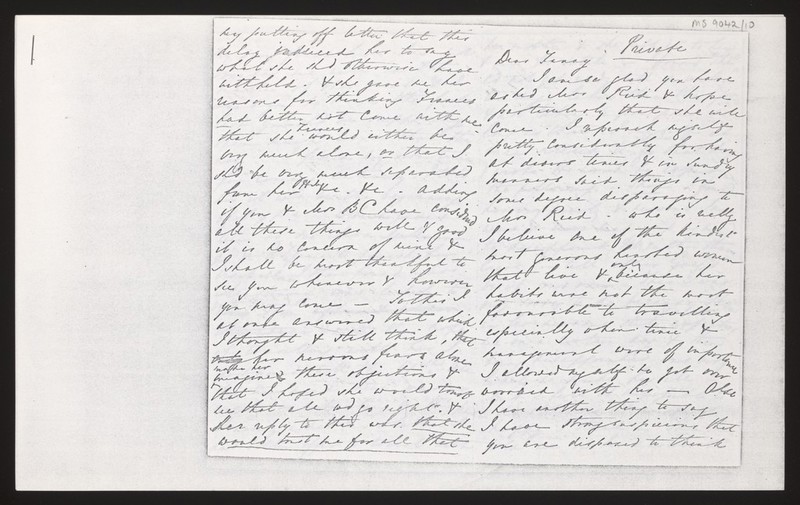 MS 9042/10
Private
Dear Fanny.
I am so glad you have
asked Mrs Reid & hope
particularly that she will
come. I reproach myself
pretty considerably for having
at divers times & in sundry
manners said things in
some degree disparaging to
Mrs Reid. who is really
I believe one of the kindest
most generous hearted women
that live & only because her
habits were not the most
favourable to travelling
especially when time &
management were of importance
I allowed myself to get over
worried with her — Also
I have another thing to say
I have strong suspicions that
you are disposed to think
by putting off letter that this
delay induced her to say
what she shd otherwise have
withheld. & she gave me her
reasons for thinking Frances
had better not come with me
that she Frances would either be
very much alone, or that I
shd be very much separated
from her &c. &c. adding
if you & Mrs BC have considered
all these things well & good
it is no concern of mine &
I shall be most thankful to
see you whenever & however
you may come — To this I
at once answered that which
I thought & still think, that
her nervous fears alone
make her imagine these objections &
that I hoped she would
see that all wd go right. &
her reply to this was that she
would trust me for all that